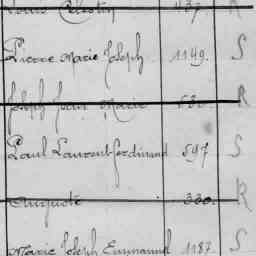 Célestin 437. R
Pierre Marie Joseph 1149. S
Joseph Jean Marie R
Paul Laurent Ferdinand 597 S
Auguste 330. R
Marie Joseph Emmanuel 1187. S